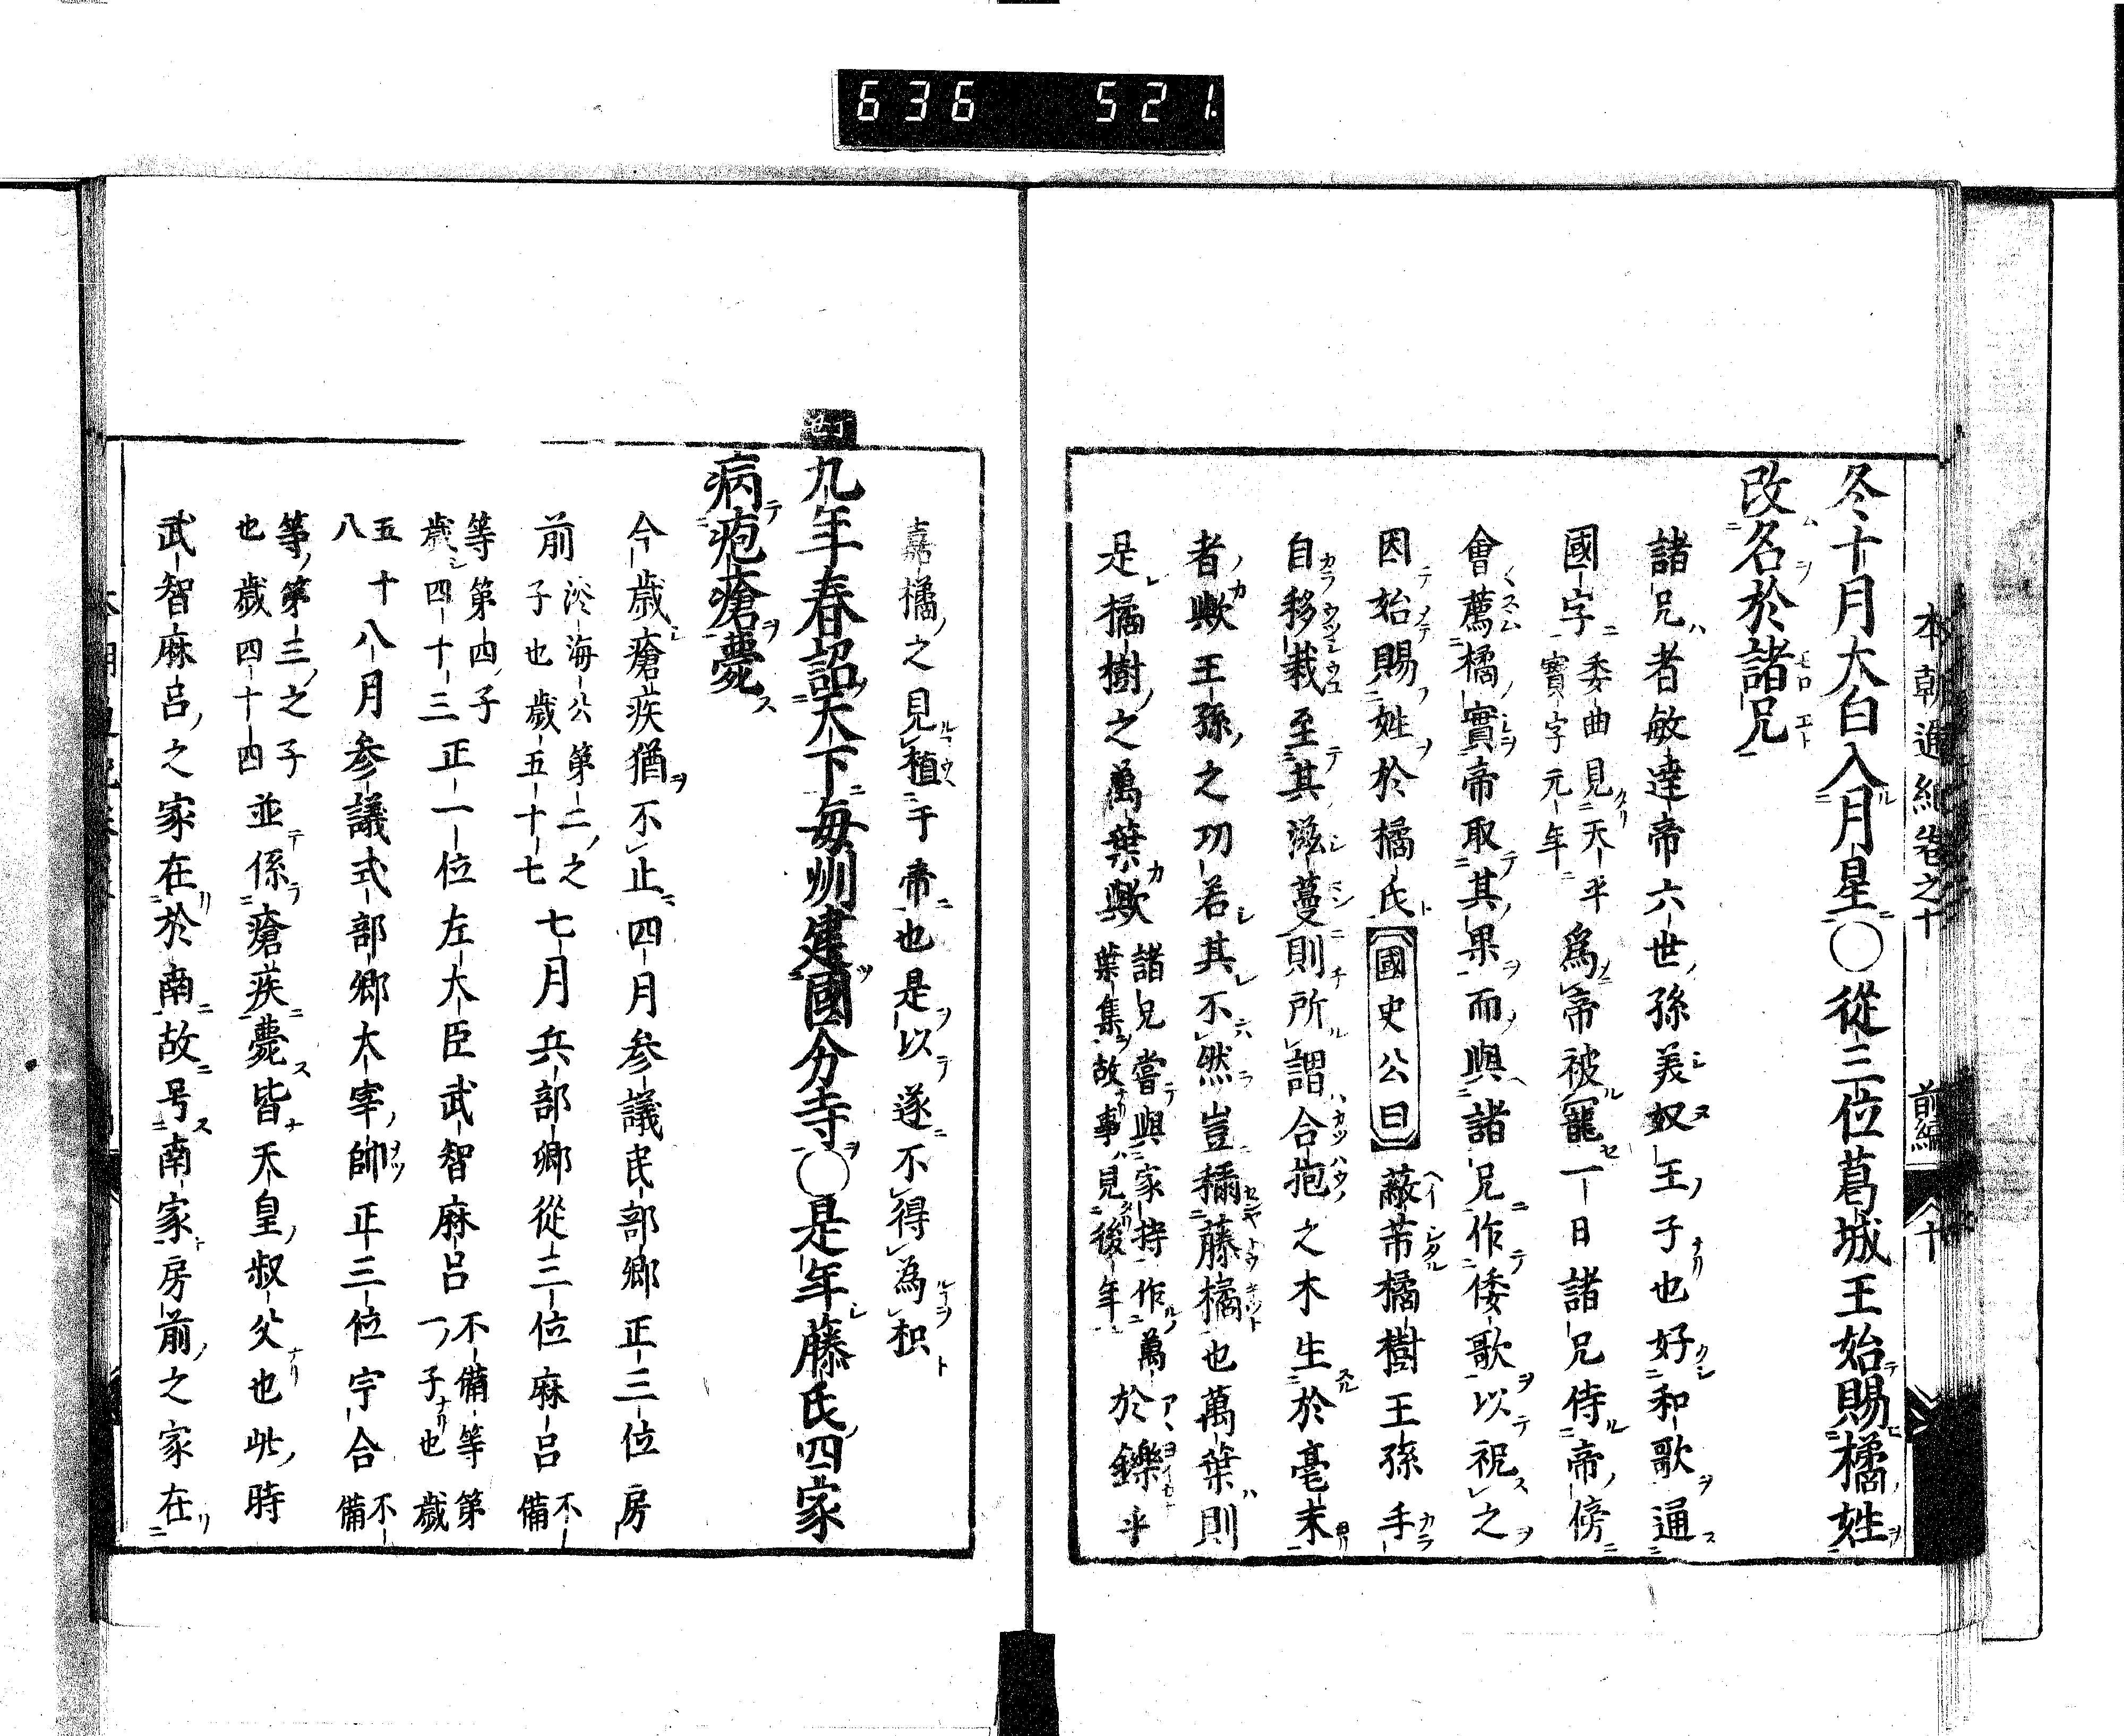 636 521
本朝通紀卷之十 前編 十
冬十月太白入月星〇從三位葛城王始賜橘姓
改名於諸兄
諸兄者敏達帝六世孫美奴王子也好和歌通
國字委曲見天平寶字元年爲帝被寵一日諸兄侍帝傍
會薦橘實帝取其果而與諸兄作倭歌以祝之
因始賜姓於橘氏國史公曰蔽芾橘樹王孫手
自移栽至其滋蔓則所謂合抱之木生於毫末
者歟王孫之功若其不然豈橘藤橘也萬葉則
是橘樹之萬葉歟諸兄嘗與家持作萬葉集故事見後年於鑠乎
嘉橘之見植于帝也是以遂不得為枳
丁丑
九年春詔天下每州建國分寺〇是年藤氏四家
病疱瘡薨
今歲瘡疾猶不止四月參議民部卿正三位房
前淡海公第二之子也歲五十七七月兵部卿從三位麻呂不備
等第四子歲四十三正一位左大臣武智麻呂不備等第一子也歲
五十八八月參議式部卿太宰帥正三位宇合不備
等第三之子也歲四十四並係瘡疾薨皆天皇叔父也此時
武智麻呂之家在於南故号南家房前之家在